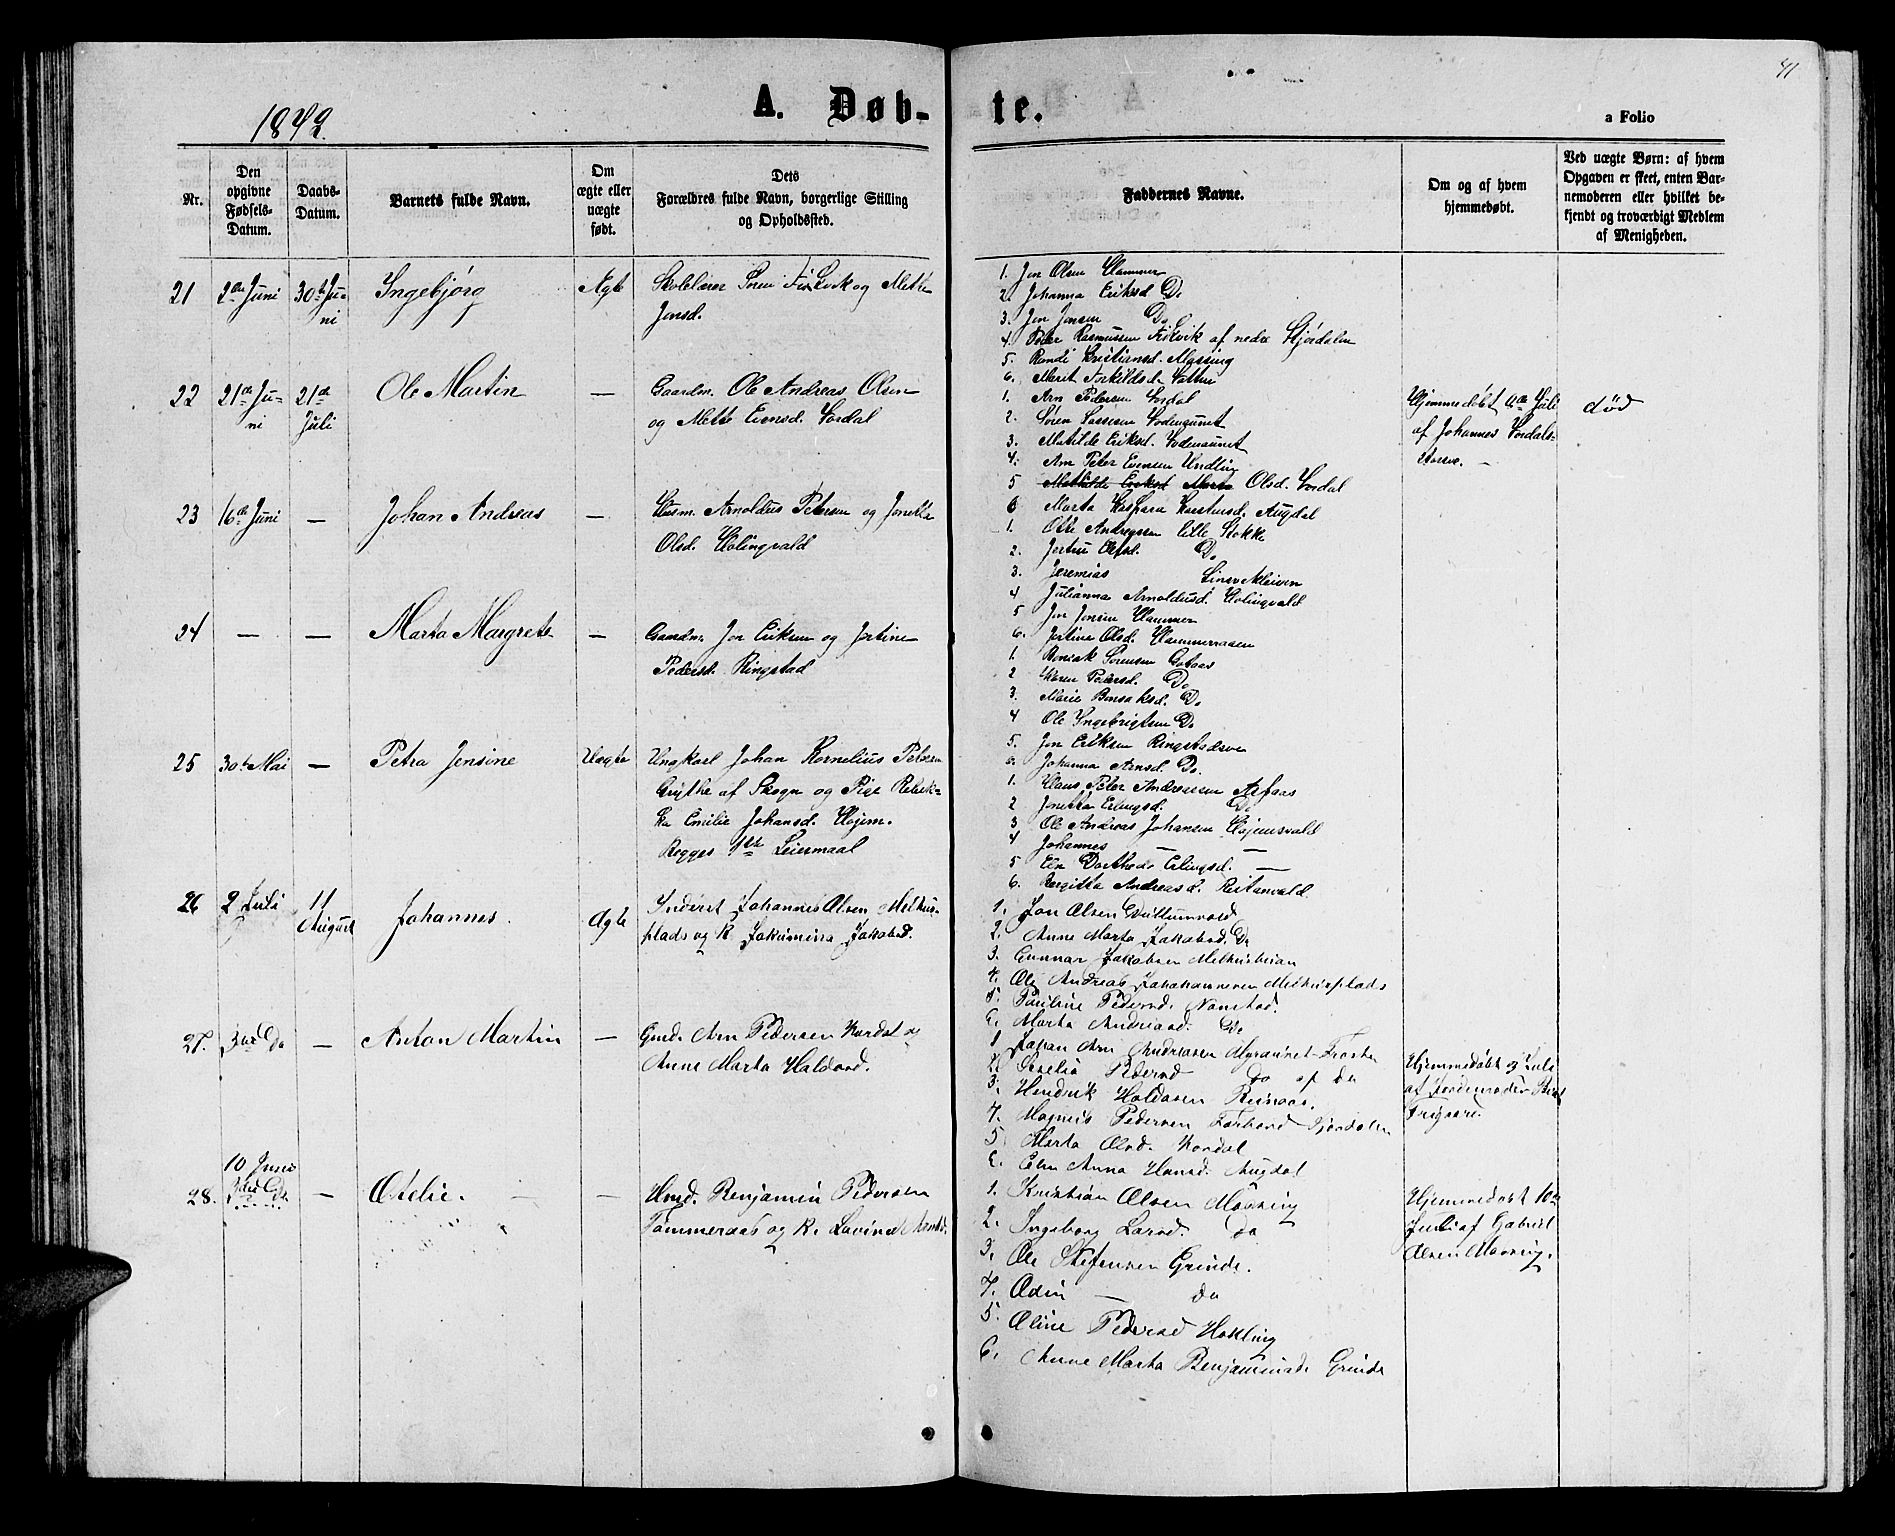 41
A. Døb-te.
a Folio
Nr.
Den opgivne Fødsels-Datum.
Daabs-Datum.
Barnets fulde Navn.
Om ægte eller uægte født.
Dets Forældres fulde Navn, borgerlige Stilling og Opholdssted.
Faddernes Navne.
Om og af hvem hjemmedøbt.
Ved uægte Børn: af hvem Opgaven er skeet, enten Barnemoderen eller hvilket bekjendt og troværdigt Medlem af Menigheden.
21
2den Juni
30te Ju-
ni
Ingebjørg
Ægte
Skolelærer Søren Fiskvik og Mette
Jonsd.
1. Jon Olsen Hammer
2. Johanna Eriksd. Do
3. Jon Jonsen Do
4. Peder Rasmussen Fiskvik af nedre Stjørdalen
5. Randi Kristiansd. Mossing
6. Marit Torkildsd.
22
21de Ju-
ni
21de
Juli
Ole Martin
—
Gaardm. Ole Andreas Olsen
og Mette Evensd. Vordal
1. Arn Pedersen Vordal
2. Søren
3. Matilde Eriksd.
4. Arn Peter Evensen Undling
5 Mathilde Eriksd Marta Olsd. Vordal
6 Marta Kaspara Augdal
Hjemmedøbt Juli
af Johannes Vordals-
død
23
16de Juni
—
Johan Andreas
—
Husm. Arnoldus Petersen og Jonetta
Olsd. Holingvald
1. Otte Andreassen lille Stokke
2. Do
3. Jeremias
4 Julianna Arnoldusd. Holingvald
5 Jon Jonsen Hammer
6. Jertine Olsd.
24
—
—
Marta Margrete
—
Gaardm. Jon Eriksen og Jertine
Pedersd. Ringstad
1. Sørensen
2 Karen Pedersd. Do
3. Marie Do
4 Ole Ingebrigtsen Do
5. Jon Eriksen
6. Johanna Arnsd. Do.
25
30te Mai
—
Petra Jensine
Uægte
Ungkarl Johan Kornelius Petersen
af Skogn og Pige Rebek-
ka Emilie Johansd. Hojem.
Begges 1ste Leiermaal
1. Klaus Peter Andreassen
2 Jonetta Erlingsd. Do
3 Ole Andreas Johansen
4 Johannes — —
5 Dorthea Erlingsd. —
6. Birgitta Andreasd.
26
2 Juli
11
August
Johannes.
Ægte
Inderst Johannes Olsen Melhus-
plads og K. Jakumina Jakobsd.
1. Jon Olsen
2. Anne Marta Jakobsd. Do
3. Gunnar Jakobsen
4. Ole Andreas Melhusplads
5. Pauline Pedersd.
6. Marta Andreasd. Do
27.
3die Do
—
Anton Martin
—
Gmd. Arn Pedersen Vordal og
Anne Marta Haldosd.
1 Johan Arn Andreasen Myraunet Frosta
2 Pedersd Do af Do
3. Hendrik Haldosen
4. Magnus Pedersen
5 Marta Olsd. Vordal
6. Elen Anna Hansd. Augdal
Hjemmedøbt 9 Juli
af Jordemoder
28.
10 Juni
3die Do
—
Otelie.
—
Hmd. Benjamin Pedersen
Tømmeraas og K. Lavine Arntsd.
1. Kristian Olsen Mossing
2. Ingeborg Larsd. Do
3. Ole Stefensen Grinde.
4. Odin — Do
5. Oline Pedersd Hokling
6. Anne Marta Benjaminsd. Grinde
Hjemmedøbt 10de
Juli af Gabriel
Olsen Mossing.